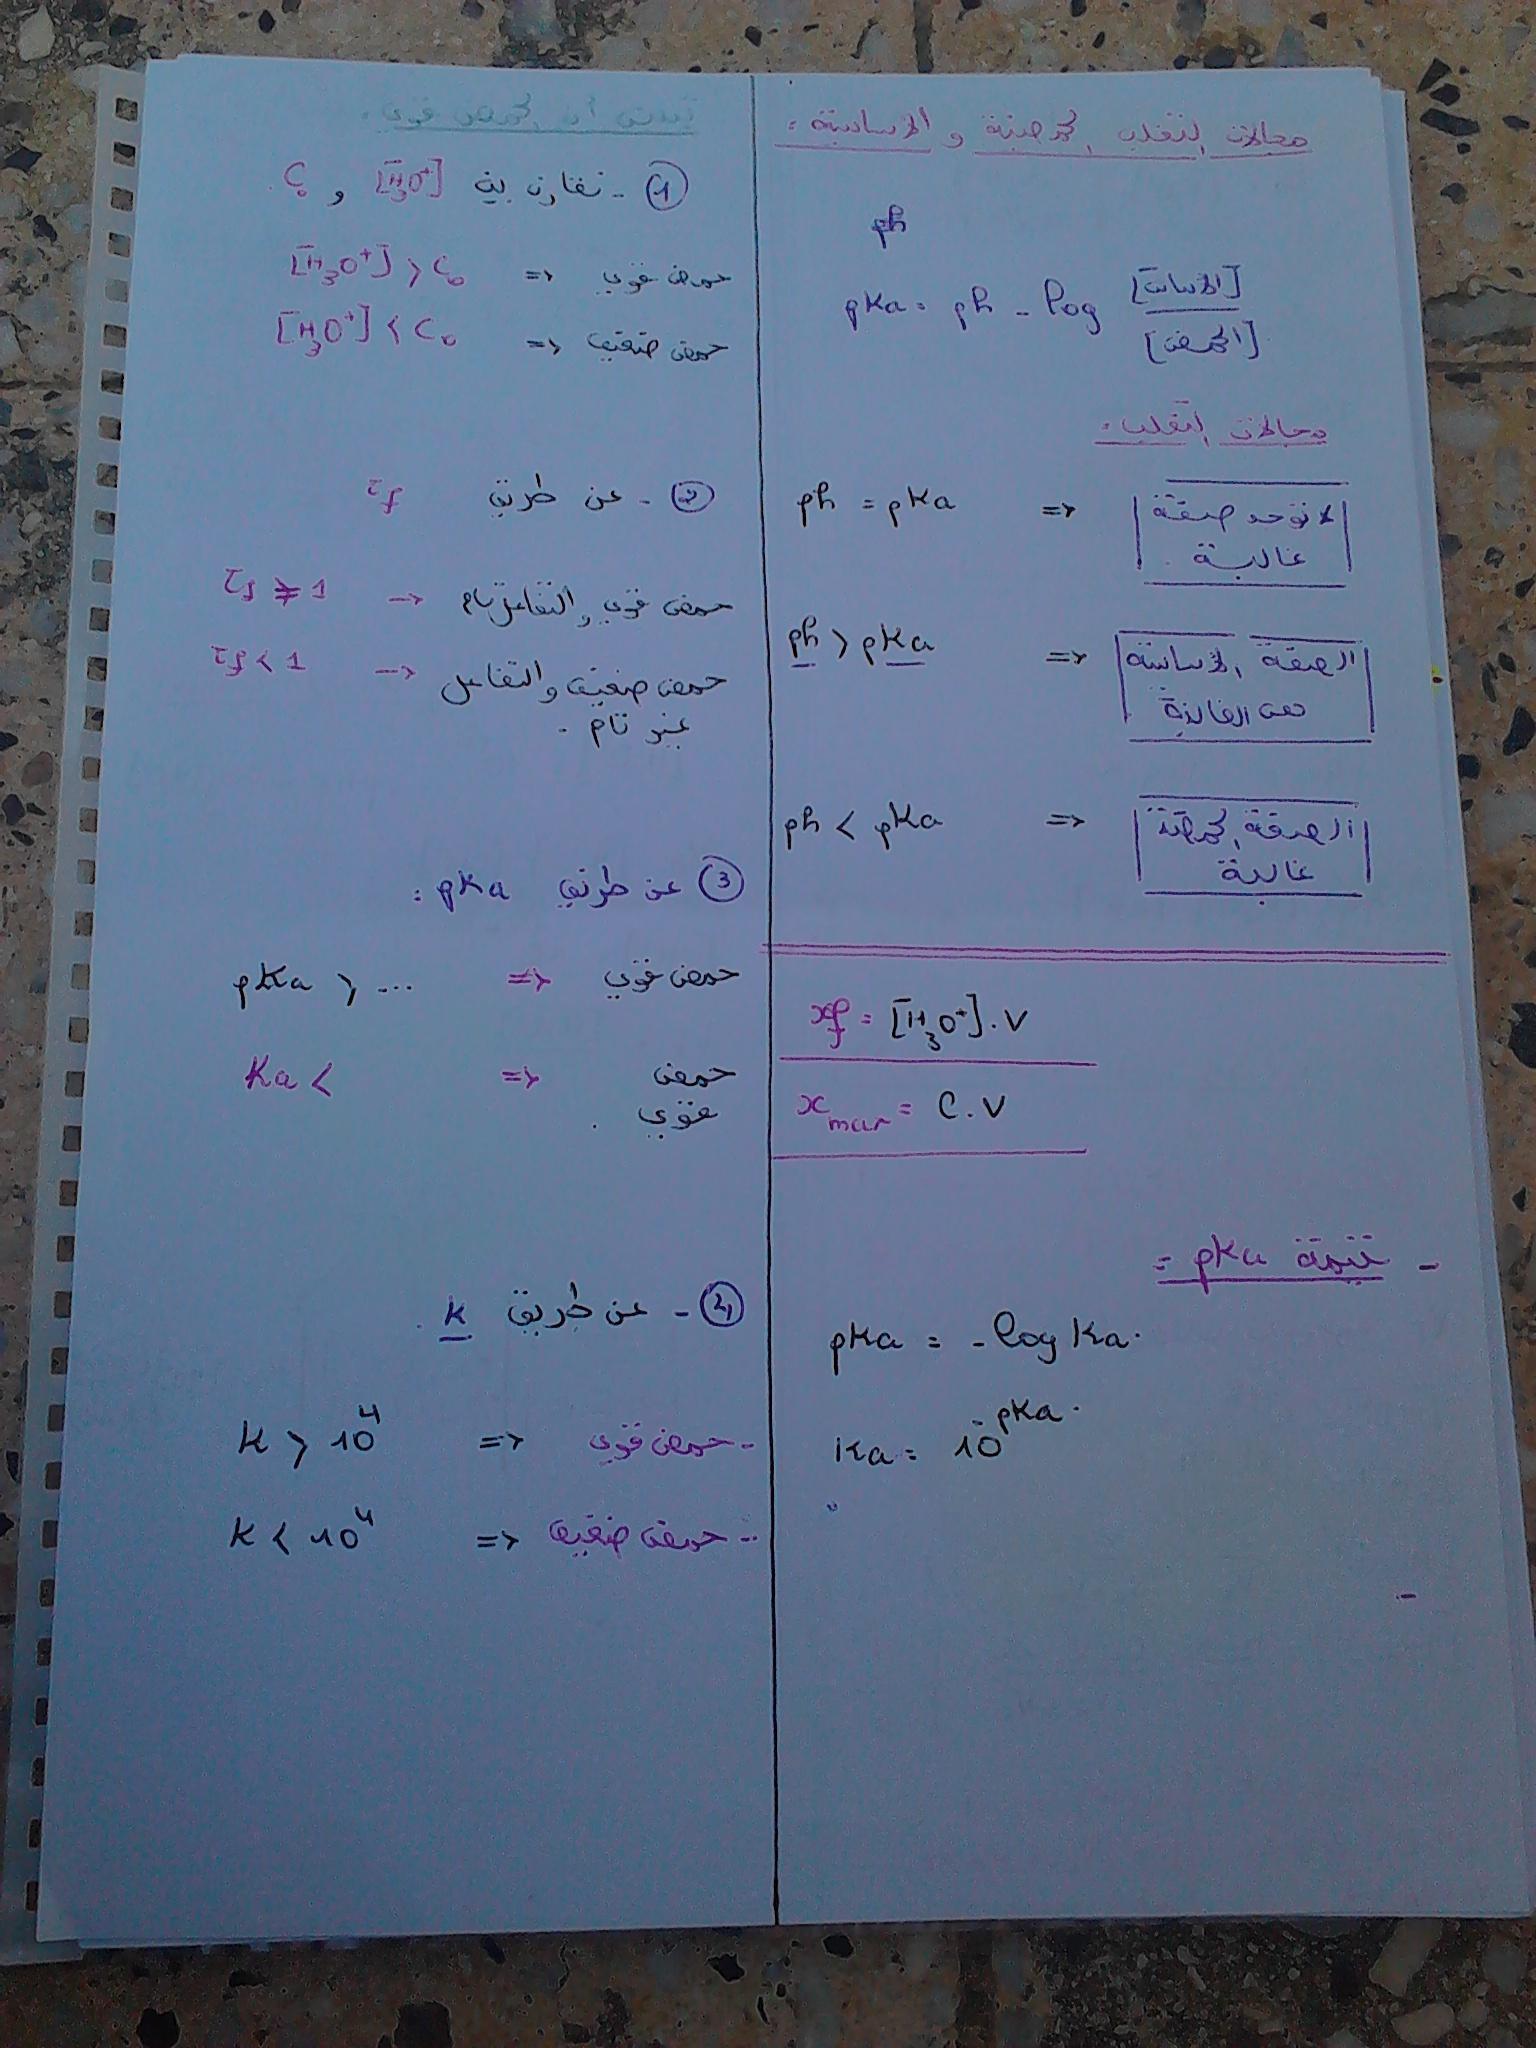 مجالات التغلب الحمضية و الأساسية :
ph
pKa = ph - log [الأساس] / [الحمض]
مجالات التغلب :
ph = pKa => لا توجد صفة
غالبة .
ph > pKa => الصفة الأساسية
هي الغالبة
ph < pKa => الصفة الحمضية
غالبة
xf = [H3O+] . V
x max = C . V
- قيمة pKa =
pKa = - log Ka .
Ka = 10^-pKa .
نثبت أن الحمض قوي :
① - نقارن بين [H3O+] و C0 .
[H3O+] > C0 => حمض قوي
[H3O+] < C0 => حمض ضعيف
② - عن طريق τf
حمض قوي والتفاعل تام
τf < 1 -> حمض ضعيف والتفاعل
غير تام .
③ عن طريق pKa :
pKa > ... => حمض قوي
Ka < => حمض
قوي .
④ - عن طريق K .
K > 10^4 => حمض قوي -
K < 10^4 => حمض ضعيف -